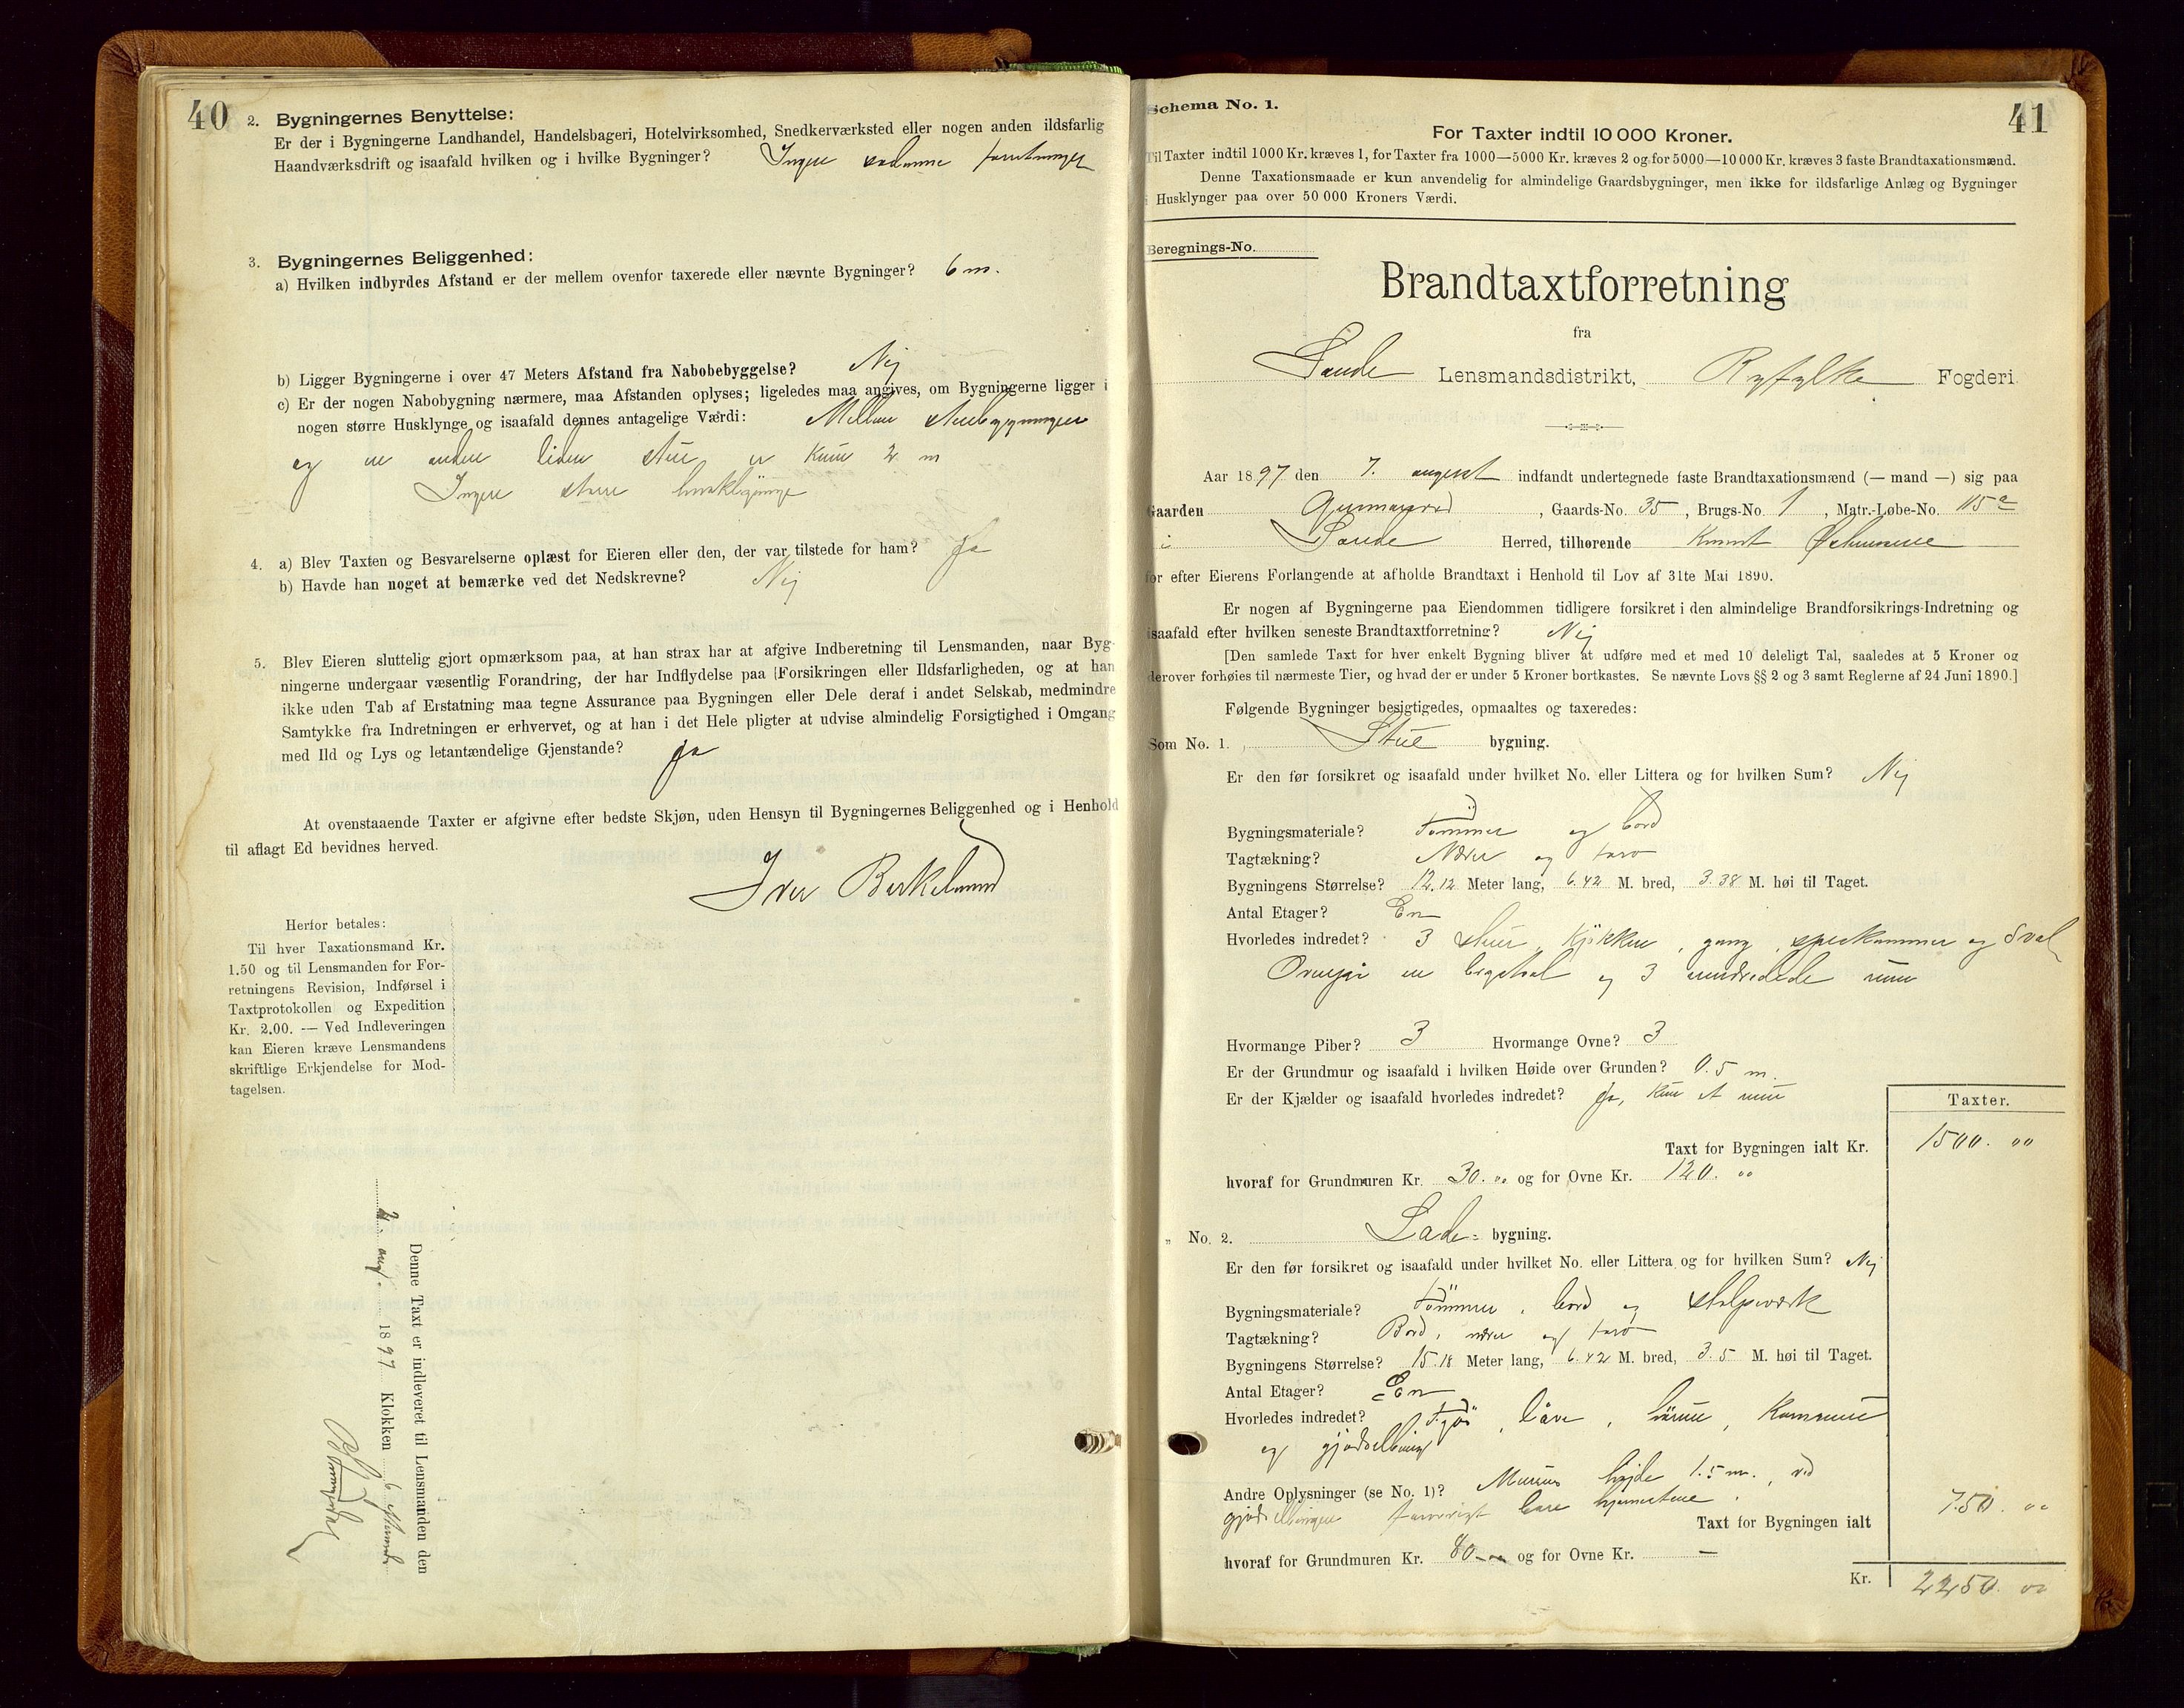 40
2. Bygningernes Benyttelse:
Er der i Bygningerne Landhandel, Handelsbageri, Hotelvirksomhed, Snedkerværksted eller nogen anden ildsfarlig
Haandværksdrift og isaafald hvilken og i hvilke Bygninger? Ingen
3. Bygningernes Beliggenhed:
a) Hvilken indbyrdes Afstand er der mellem ovenfor taxerede eller nævnte Bygninger? 6 m.
b) Ligger Bygningerne i over 47 Meters Afstand fra Nabobebyggelse? Nej
c) Er der nogen Nabobygning nærmere, maa Afstanden oplyses; ligeledes maa angives, om Bygningerne ligger i
nogen større Husklynge og isaafald dennes antagelige Værdi: Mellem stuebygningen
og en anden liden stue er kun 2 m
Ingen større husklynge
4. a) Blev Taxten og Besvarelserne oplæst for Eieren eller den, der var tilstede for ham? Ja
b) Havde han noget at bemærke ved det Nedskrevne? Nej
5. Blev Eieren sluttelig gjort opmærksom paa, at han strax har at afgive Indberetning til Lensmanden, naar Byg-
ningerne undergaar væsentlig Forandring, der har Indflydelse paa [Forsikringen eller Ildsfarligheden, og at han
ikke uden Tab af Erstatning maa tegne Assurance paa Bygningen eller Dele deraf i andet Selskab, medmindre
Samtykke fra Indretningen er erhvervet, og at han i det Hele pligter at udvise almindelig Forsigtighed i Omgang
med Ild og Lys og letantændelige Gjenstande? Ja
At ovenstaaende Taxter er afgivne efter bedste Skjøn, uden Hensyn til Bygningernes Beliggenhed og i Henhold
til aflagt Ed bevidnes herved.
Iver Berkelund
Herfor betales:
Til hver Taxationsmand Kr.
1.50 og til Lensmanden for For-
retningens Revision, Indførsel i
Taxtprotokollen og Expedition
Kr. 2.00. — Ved Indleveringen
kan Eieren kræve Lensmandens
skriftlige Erkjendelse for Mod-
tagelsen.
Denne Taxt er indleveret til Lensmanden den
aug. 1897 Klokken 6
41
Schema No. 1.
For Taxter indtil 10 000 Kroner.
Til Taxter indtil 1000 Kr. kræves 1, for Taxter fra 1000—5000 Kr. kræves 2 og for 5000—10 000 Kr. kræves 3 faste Brandtaxationsmænd.
Denne Taxationsmaade er kun anvendelig for almindelige Gaardsbygninger, men ikke for ildsfarlige Anlæg og Bygninger
i Husklynger paa over 50 000 Kroners Værdi.
Beregnings-No.
Brandtaxtforretning
fra
Sande Lensmandsdistrikt, Ryfylke Fogderi.
Aar 1897 den 7. august indfandt undertegnede faste Brandtaxationsmænd (— mand —) sig paa
Gaarden , Gaards-No. 35, Brugs-No. 1, Matr.-Løbe-No. 115 a
i Sande Herred, tilhørende Knut
for efter Eierens Forlangende at afholde Brandtaxt i Henhold til Lov af 31te Mai 1890.
Er nogen af Bygningerne paa Eiendommen tidligere forsikret i den almindelige Brandforsikrings-Indretning og
isaafald efter hvilken seneste Brandtaxtforretning? Nej
[Den samlede Taxt for hver enkelt Bygning bliver at udføre med et med 10 deleligt Tal, saaledes at 5 Kroner og
derover forhøies til nærmeste Tier, og hvad der er under 5 Kroner bortkastes. Se nævnte Lovs §§ 2 og 3 samt Reglerne af 24 Juni 1890.]
Følgende Bygninger besigtigedes, opmaaltes og taxeredes:
Som No. 1. Stue bygning.
Er den før forsikret og isaafald under hvilket No. eller Littera og for hvilken Sum? Nej
Bygningsmateriale? Tømmer og bord
Tagtækning? Næver og torv
Bygningens Størrelse? 12.12 Meter lang, 6.42 M. bred, 3.38 M. høi til Taget.
Antal Etager? En
Hvorledes indredet? 3 stuer, kjøkken, gang, spiskammer og sval
Ovenpaa en og 3 uindredede rum
Hvormange Piber? 3 Hvormange Ovne? 3
Er der Grundmur og isaafald i hvilken Høide over Grunden? 0.5 m.
Er der Kjælder og isaafald hvorledes indredet? Ja, kun et rum
Taxter.
Taxt for Bygningen ialt Kr. 1500. 00
hvoraf for Grundmuren Kr. 30. 00 og for Ovne Kr. 120. 00
„ No. 2. Lade- bygning.
Er den før forsikret og isaafald under hvilket No. eller Littera og for hvilken Sum? Nej
Bygningsmateriale? Tømmer, bord og stolpeværk
Tagtækning? Bord, næver og torv
Bygningens Størrelse? 15.18 Meter lang, 6.42 M. bred, 3.5 M. høi til Taget.
Antal Etager? En
Hvorledes indredet? Fjøs, låve,
og
Andre Oplysninger (se No. 1)? Murens højde 1.5 m., ved
bare hjørnestene.
Taxt for Bygningen ialt 750. 00
hvoraf for Grundmuren Kr. 80 og for Ovne Kr. —
Kr. 2250. 00